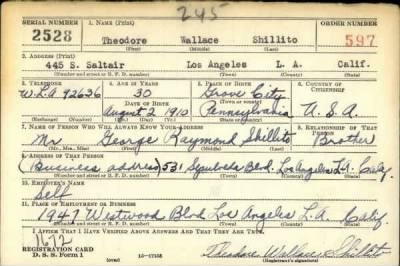 245
SERIAL NUMBER 1. NAME (Print) ORDER NUMBER
2528 Theodore Wallace Shillito 597
(First) (Middle) (Last)
2. ADDRESS (Print)
445 S. Saltair Los Angeles L. A. Calif.
(Number and street or R. F. D. number) (Town) (County) (State)
3. TELEPHONE 4. AGE IN YEARS 5. PLACE OF BIRTH 6. COUNTRY OF CITIZENSHIP
W.L.A 92636 30 Grove City
DATE OF BIRTH (Town or county)
August 2 1910 Pennsylvania U. S. A.
(Exchange) (Number) (Mo.) (Day) (Yr.) (State or country)
7. NAME OF PERSON WHO WILL ALWAYS KNOW YOUR ADDRESS 8. RELATIONSHIP OF THAT PERSON
Mr George Raymond Shillito Brother
(Mr., Mrs., Miss) (First) (Middle) (Last)
9. ADDRESS OF THAT PERSON
(Business address) 531 Blvd. Los Angeles L.A. Calif.
(Number and street or R. F. D. number) (Town) (County) (State)
10. EMPLOYER'S NAME
Self
11. PLACE OF EMPLOYMENT OR BUSINESS
1947 Westwood Blvd Los Angeles L.A. Calif.
(Number and street or R. F. D. number) (Town) (County) (State)
I AFFIRM THAT I HAVE VERIFIED ABOVE ANSWERS AND THAT THEY ARE TRUE.
1672
REGISTRATION CARD
D. S. S. Form 1 Theodore Wallace Shillito
(over) (Registrant's signature)